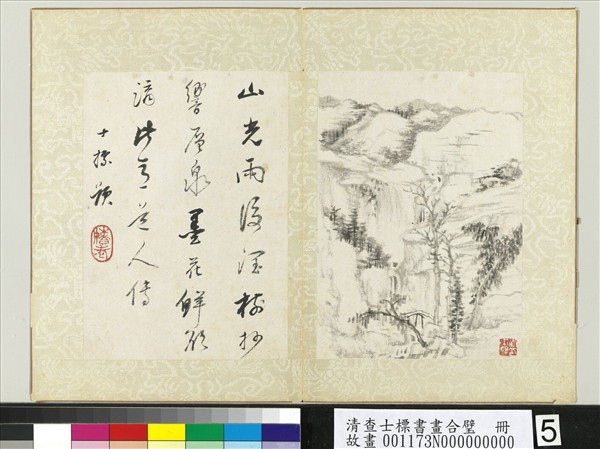 山光雨後溼樹杪
響層泉墨花鮮欲
滴此意人傳
士標題
清查士標書畫合璧 冊
故畫 001173N000000000
5